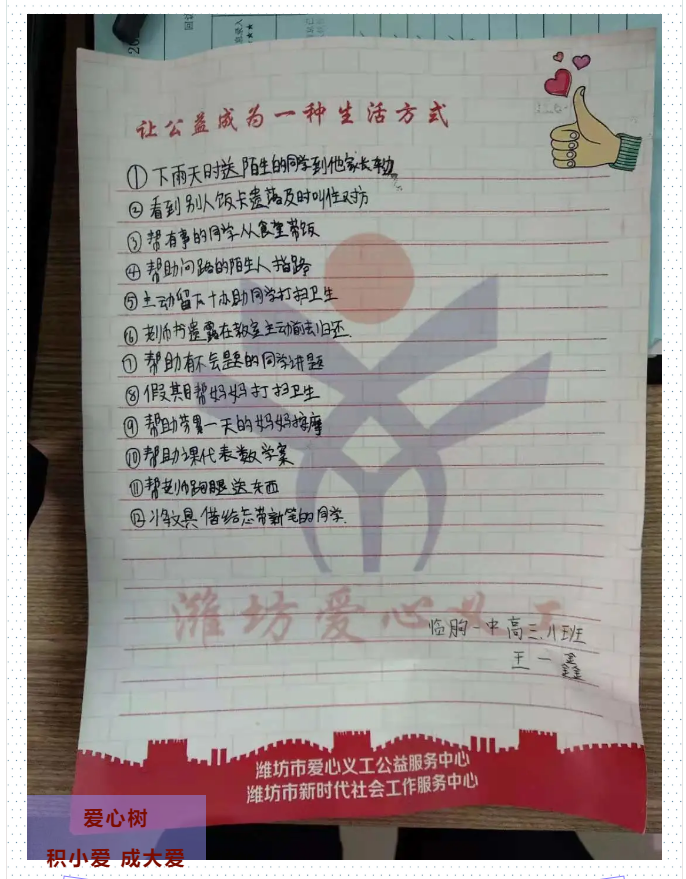 让公益成为一种生活方式
①下雨天时送陌生的同学到他家长车边
②看到别人饭卡遗落及时叫住对方
③帮有事的同学从食堂带饭
④帮助问路的陌生人指路
⑤主动留下协助同学打扫卫生
⑥老师书遗露在教室主动前去归还.
⑦帮助有不会题的同学讲题
⑧假期帮妈妈打扫卫生
⑨帮助劳累一天的妈妈按摩
⑩帮助课代表数学案
⑪帮老师跑腿送东西
⑫将文具借给忘带新笔的同学.
潍坊爱心义工
临朐一中高三.八班
王一鑫
潍坊市爱心义工公益服务中心
潍坊市新时代社会工作服务中心
爱心树
积小爱 成大爱